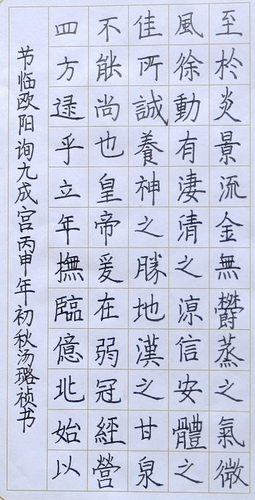 至於炎景流金無鬱蒸之氣微
風徐動有淒清之涼信安體之
佳所誠養神之勝地漢之甘泉
不能尚也皇帝爰在弱冠經營
四方逮乎立年撫臨億兆始以
节临欧阳询九成宫丙申年初秋汤璐祯书